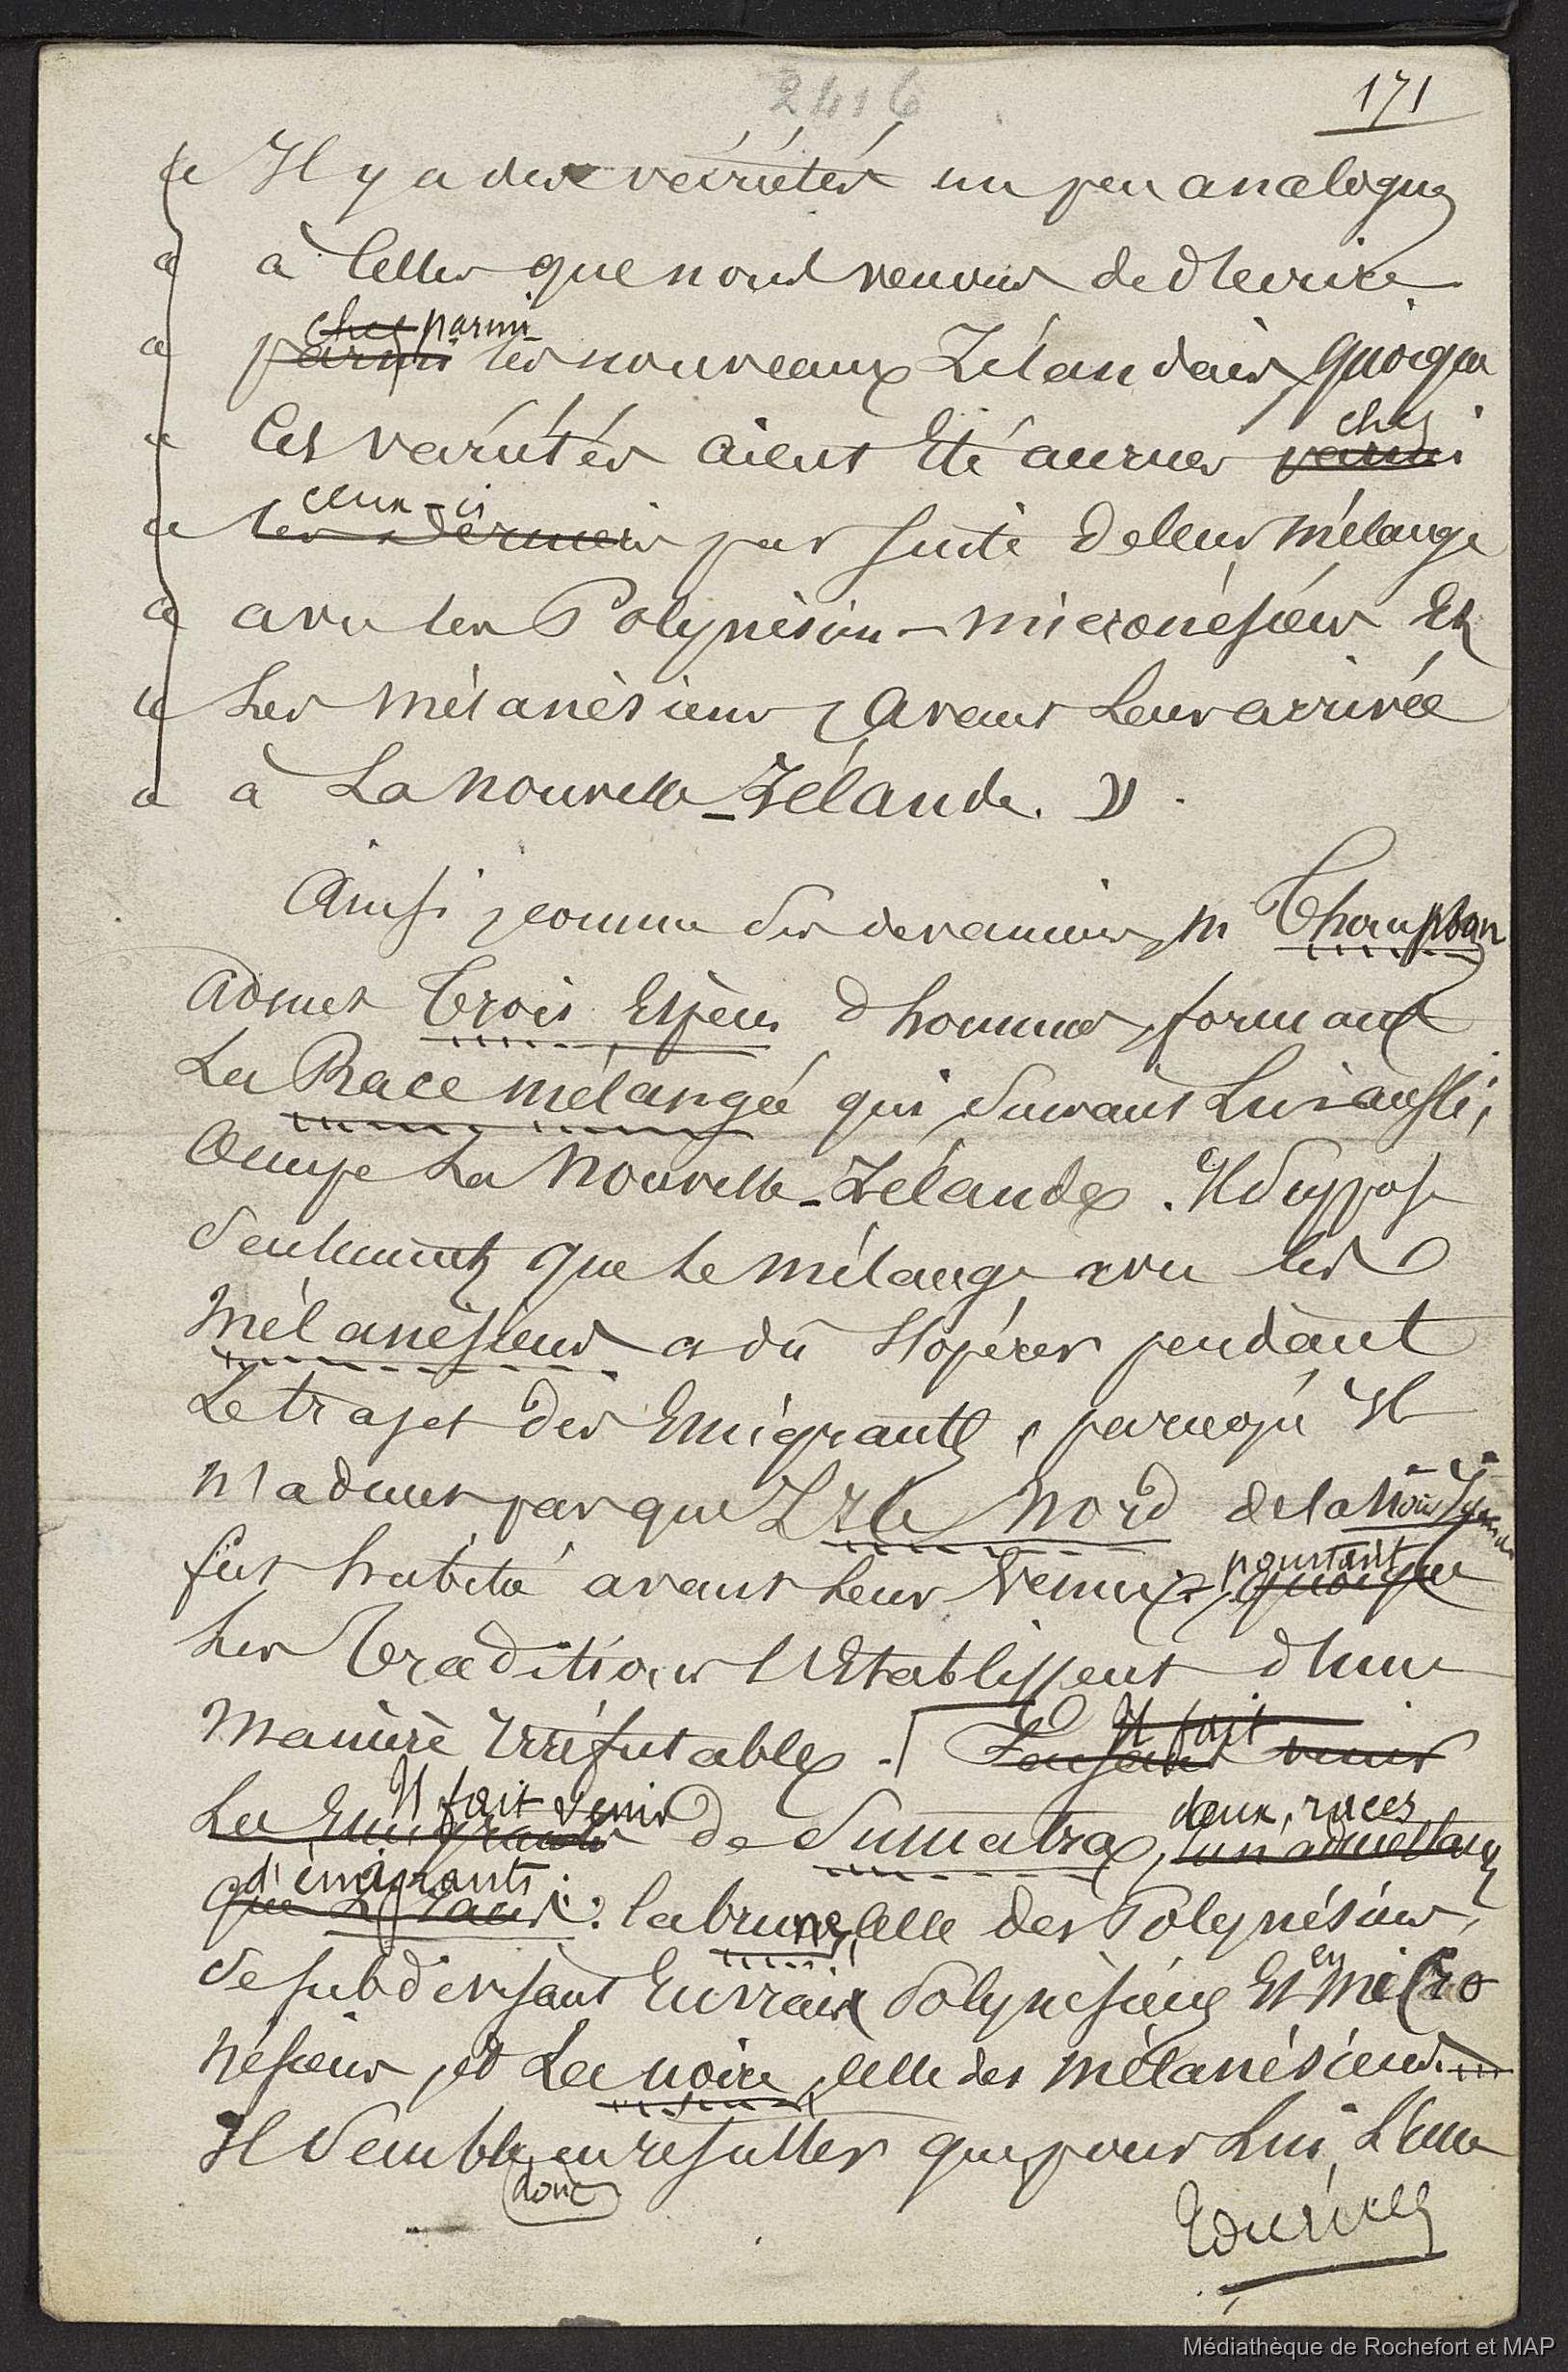 2416
171
« Il y a des variétés un peu analogues
« à celles que nous venons de décrire
« chez parmi
« parmi les nouveaux Zélandais, quoique
chez
« ces variétés aient été accrues parmi
ceux-ci
« ces derniers par suite de leur mélange
« avec les Polynésiens-micronésiens et
« les mélanésiens, avant leur arrivée
« à la nouvelle-Zélande. »
Ainsi, comme on le verra, M Thompson
admet trois espèces d'hommes, formant
la Race mélangée qui, suivant lui aussi,
occupe la Nouvelle-Zélande. Il suppose
seulement que le mélange avec les
Mélanésiens a dû s'opérer pendant
le trajet des Emigrants, parcequ'il
n'admet pas que l'Ile Nord de la Nou
fut habitée avant leur venue, quoique
pourtant
les traditions l'établissent d'une
manière irréfutable. Faisant venir
Il fait
les Emigrants de Sumatra, en admettant
Il fait venir
deux races
d'émigrants:
que : la brune, celle des Polynésiens,
se subdivisant en vrais Polynésiens et en micro
nésiens, et la noire, celle des mélanésiens.
Il semble en resulter que, pour lui, l'une
donc